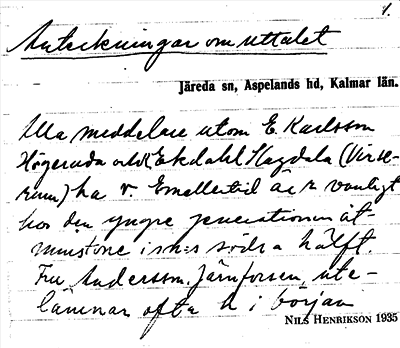 1.
Anteckningar om uttalet
Järeda sn, Aspelands hd, Kalmar län.
Alla meddelare utom E. Karlsson
Högeruda och K. Ekdahl Hagdala (Virse-
rum) ha r. Emellertid är r vanligt
hos den yngre generationen åt-
minstone i sn:s södra hälft.
Fru Andersson, Järnforsen, ute-
lämnar ofta h i början
NILS HENRIKSON 1935